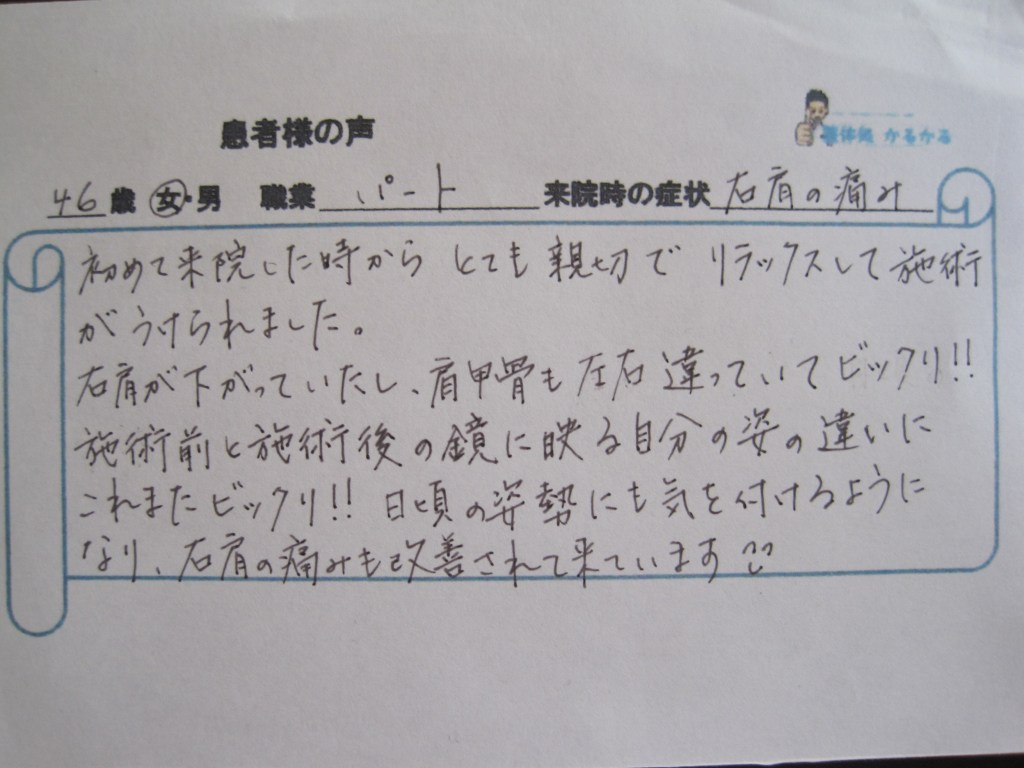 患者様の声
整体処 かるかる
46歳 女・男 職業 パート 来院時の症状 右肩の痛み
初めて来院した時から とても親切で リラックスして施術
がうけられました。
右肩が下がっていたし、肩甲骨も左右違っていてビックリ!!
施術前と施術後の鏡に映る自分の姿の違いに
これまたビックリ!! 日頃の姿勢にも気を付けるように
なり、右肩の痛みも改善されて来ています